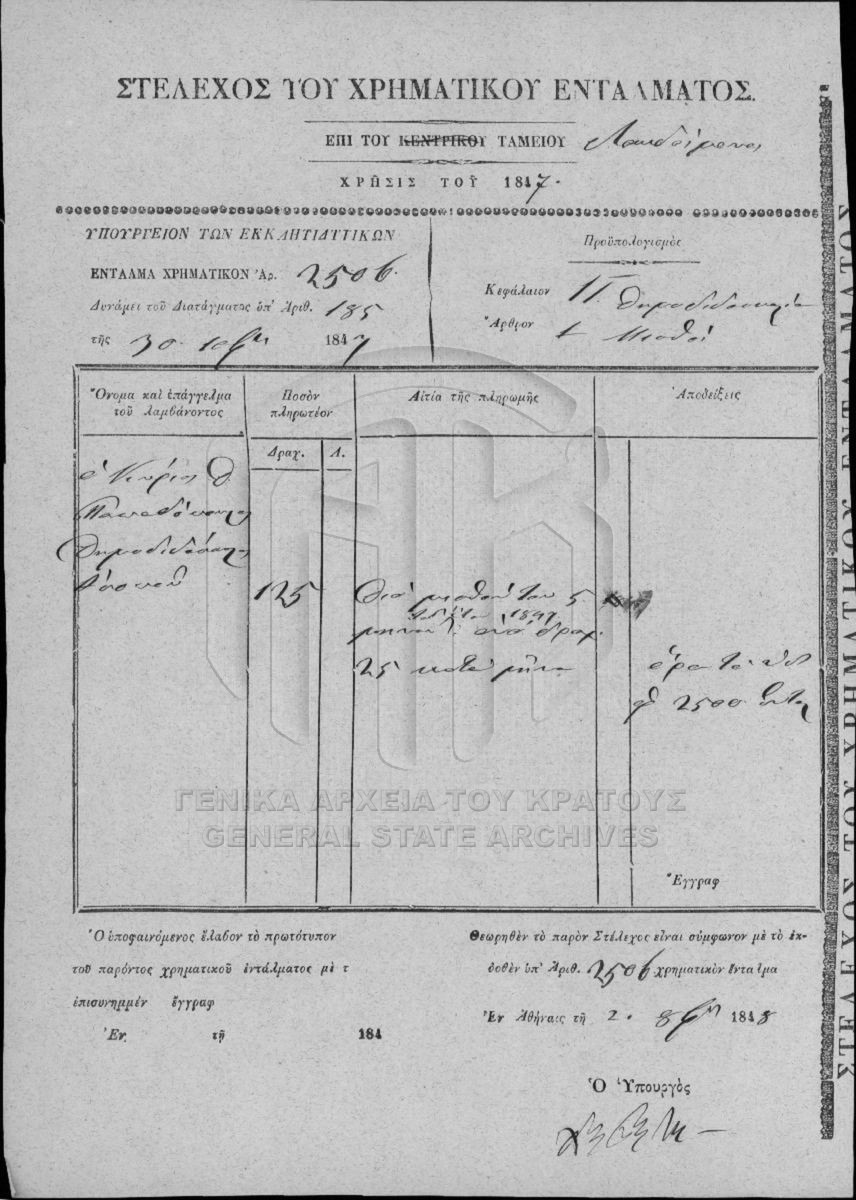 ΣΤΕΛΕΧΟΣ ΤΟΥ ΧΡΗΜΑΤΙΚΟΥ ΕΝΤΑΛΜΑΤΟΣ.
ΕΠΙ ΤΟΥ ΚΕΝΤΡΙΚΟΥ ΤΑΜΕΙΟΥ
ΧΡΗΣΙΣ ΤΟΥ 1847.
ΥΠΟΥΡΓΕΙΟΝ ΤΩΝ ΕΚΚΛΗΣΙΑΣΤΙΚΩΝ
ΕΝΤΑΛΜΑ ΧΡΗΜΑΤΙΚΟΝ Ἀρ. 2506.
Δυνάμει τοῦ Διατάγματος ὑπ' Ἀριθ. 185
τῆς 30 1847
Προϋπολογισμός
Κεφάλαιον
Ἄρθρον Μισθοί
Ὄνομα καὶ ἐπάγγελμα
τοῦ λαμβάνοντος
Ποσὸν
πληρωτέον
Δραχ. Λ.
Αἰτία τῆς πληρωμῆς
Ἀποδείξεις
ὁ Κύριος Θ.
Παπαδόπουλος
Δημοδιδάσκαλος
125
διὰ μισθόν του 5
1847
ἀνὰ δραχ.
25 κατὰ μῆνα
ὅρα τὸ ὑπ
2500
Ἔγγραφ
Ὁ ὑποφαινόμενος ἔλαβον τὸ πρωτότυπον
τοῦ παρόντος χρηματικοῦ ἐντάλματος μὲ τ
ἐπισυνημμέν ἔγγραφ
Ἐν τῇ 184
Θεωρηθὲν τὸ παρὸν Στέλεχος εἶναι σύμφωνον μὲ τὸ ἐκ-
δοθὲν ὑπ' Ἀριθ. 2506 χρηματικὸν ἔνταλμα
Ἐν Ἀθήναις τῇ 2. 1848
Ὁ Ὑπουργὸς
ΣΤΕΛΕΧΟΣ ΤΟΥ ΧΡΗΜΑΤΙΚΟΥ ΕΝΤΑΛΜΑΤΟΣ
ΓΕΝΙΚΑ ΑΡΧΕΙΑ ΤΟΥ ΚΡΑΤΟΥΣ
GENERAL STATE ARCHIVES